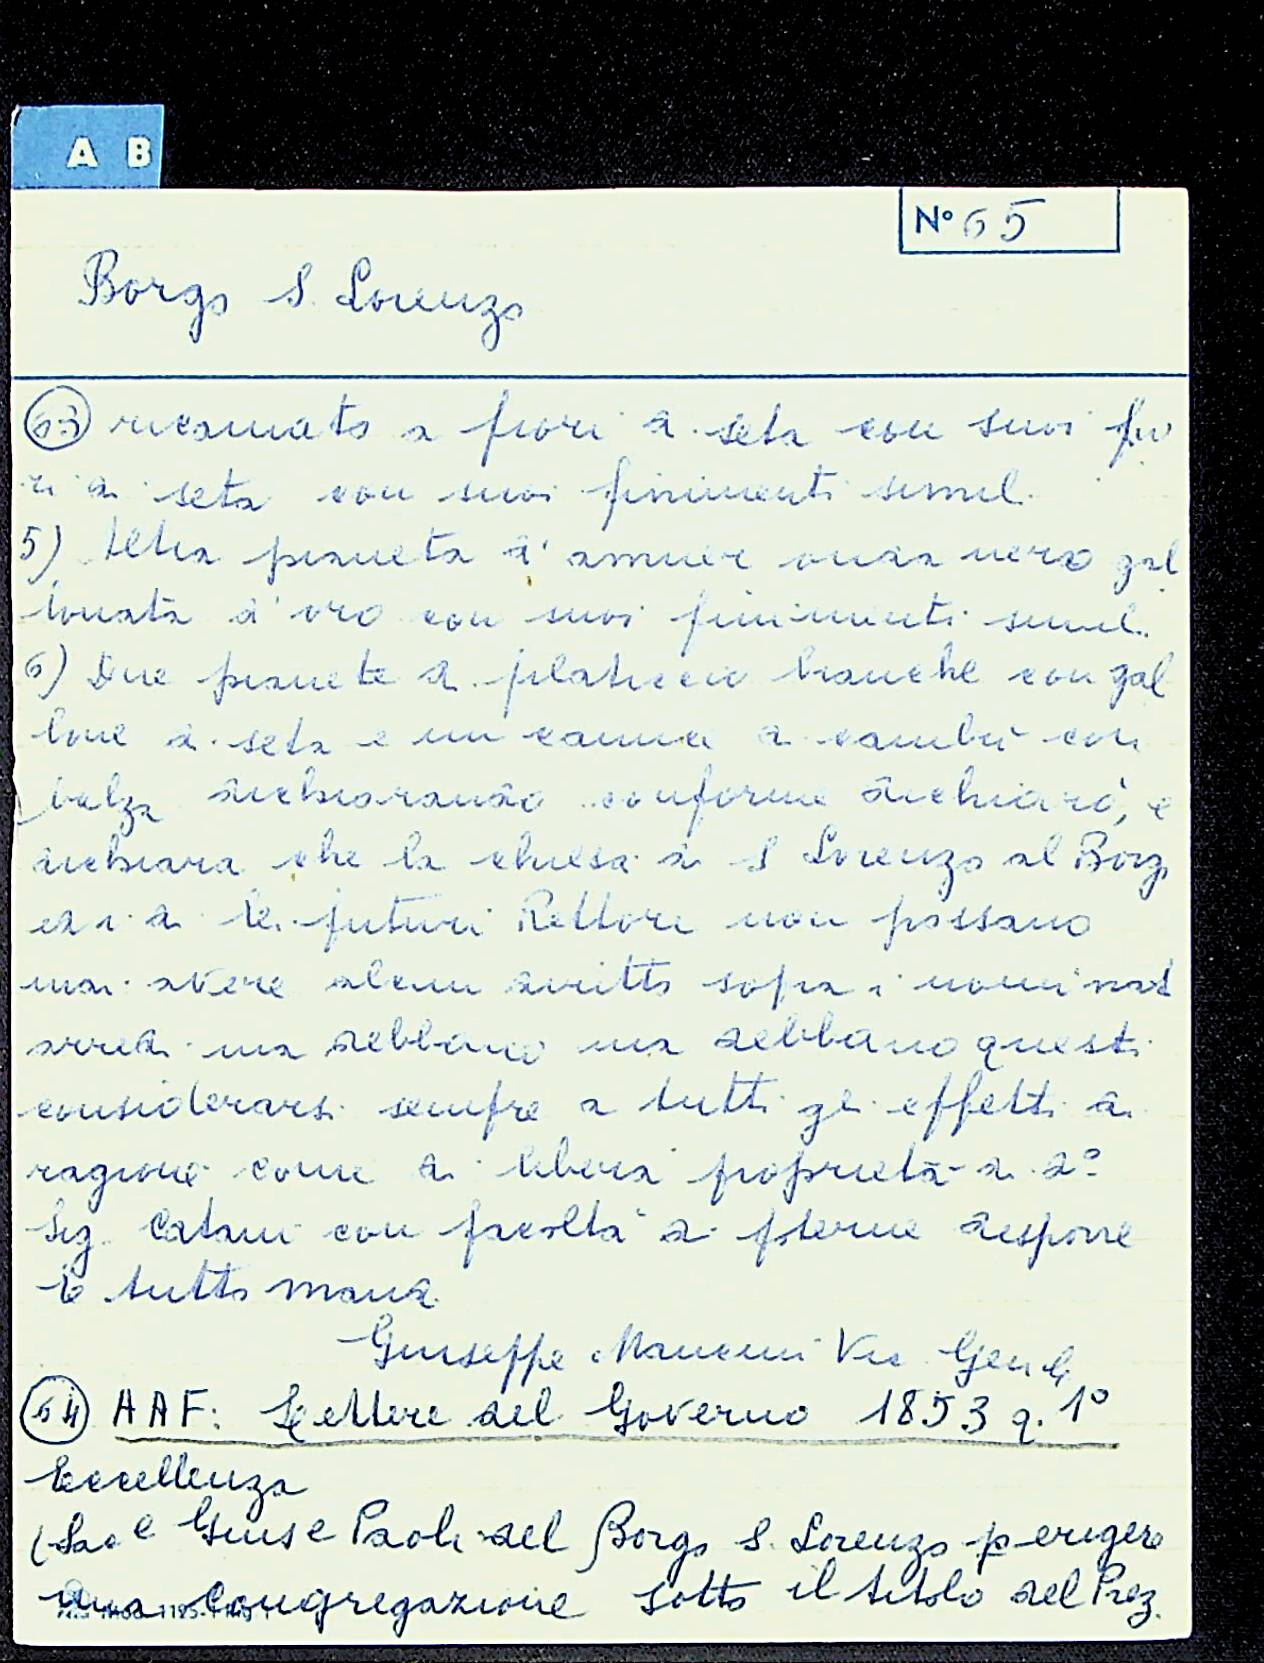 A B
N° 65
Borgo S. Lorenzo
63 ricamato a fiori di seta con suoi fio
ri di seta con suoi finimenti simil.
5) Altra pianeta d' amuer onda nero gal
lonata d' oro con suoi finimenti simil.
6) Due pianete di bianche con gal
lone di seta e un camice di cambrì con
balza dichiarando conforme dichiarò, e
dichiara che la chiesa di S Lorenzo al Borgo
ed i di lei futuri Rettori non possano
mai avere alcun diritto sopra i nominat
arredi ma debbano ma debbano questi
considerarsi sempre a tutti gli effetti di
ragione come di libera proprietà di d°
Sig. Catani con facoltà di disporre
tutto mand.
Giuseppe Mancini Vic Gen
64 AAF: Lettere del Governo 1853 q. 1°
Eccellenza
(Sac e Gius e Paoli del Borgo S. Lorenzo p erigere
una Congregazione sotto il titolo del Prez.